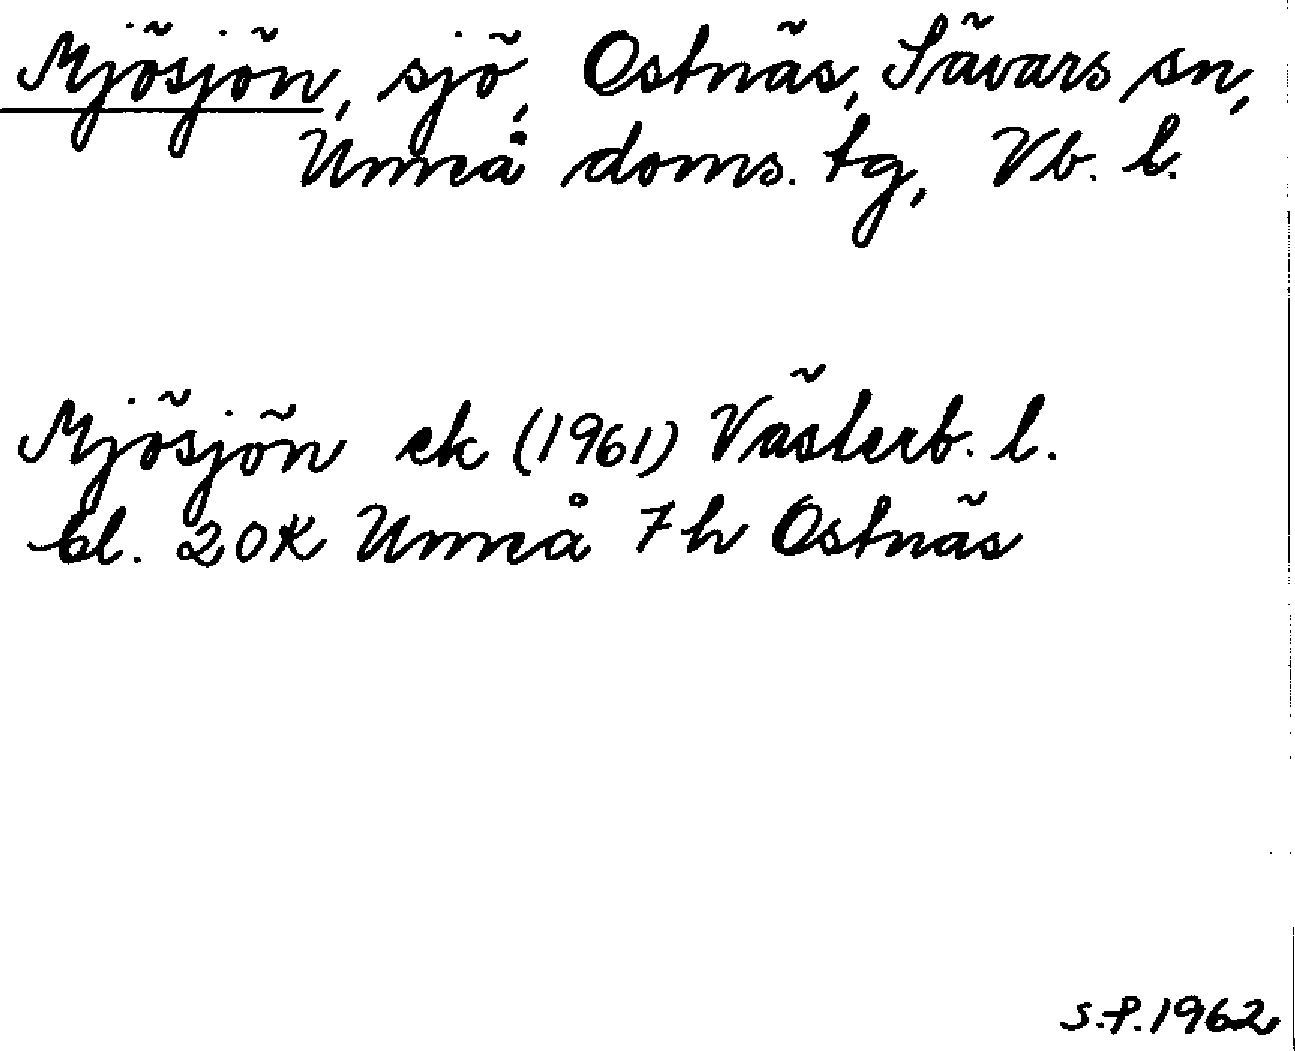 Mjösjön, sjö, Ostnäs, Sävars sn,
Umeå doms. tg, Vb. l.
Mjösjön ek (1961) Västerb. l.
bl. 20K Umeå 7h Ostnäs
S.P. 1962